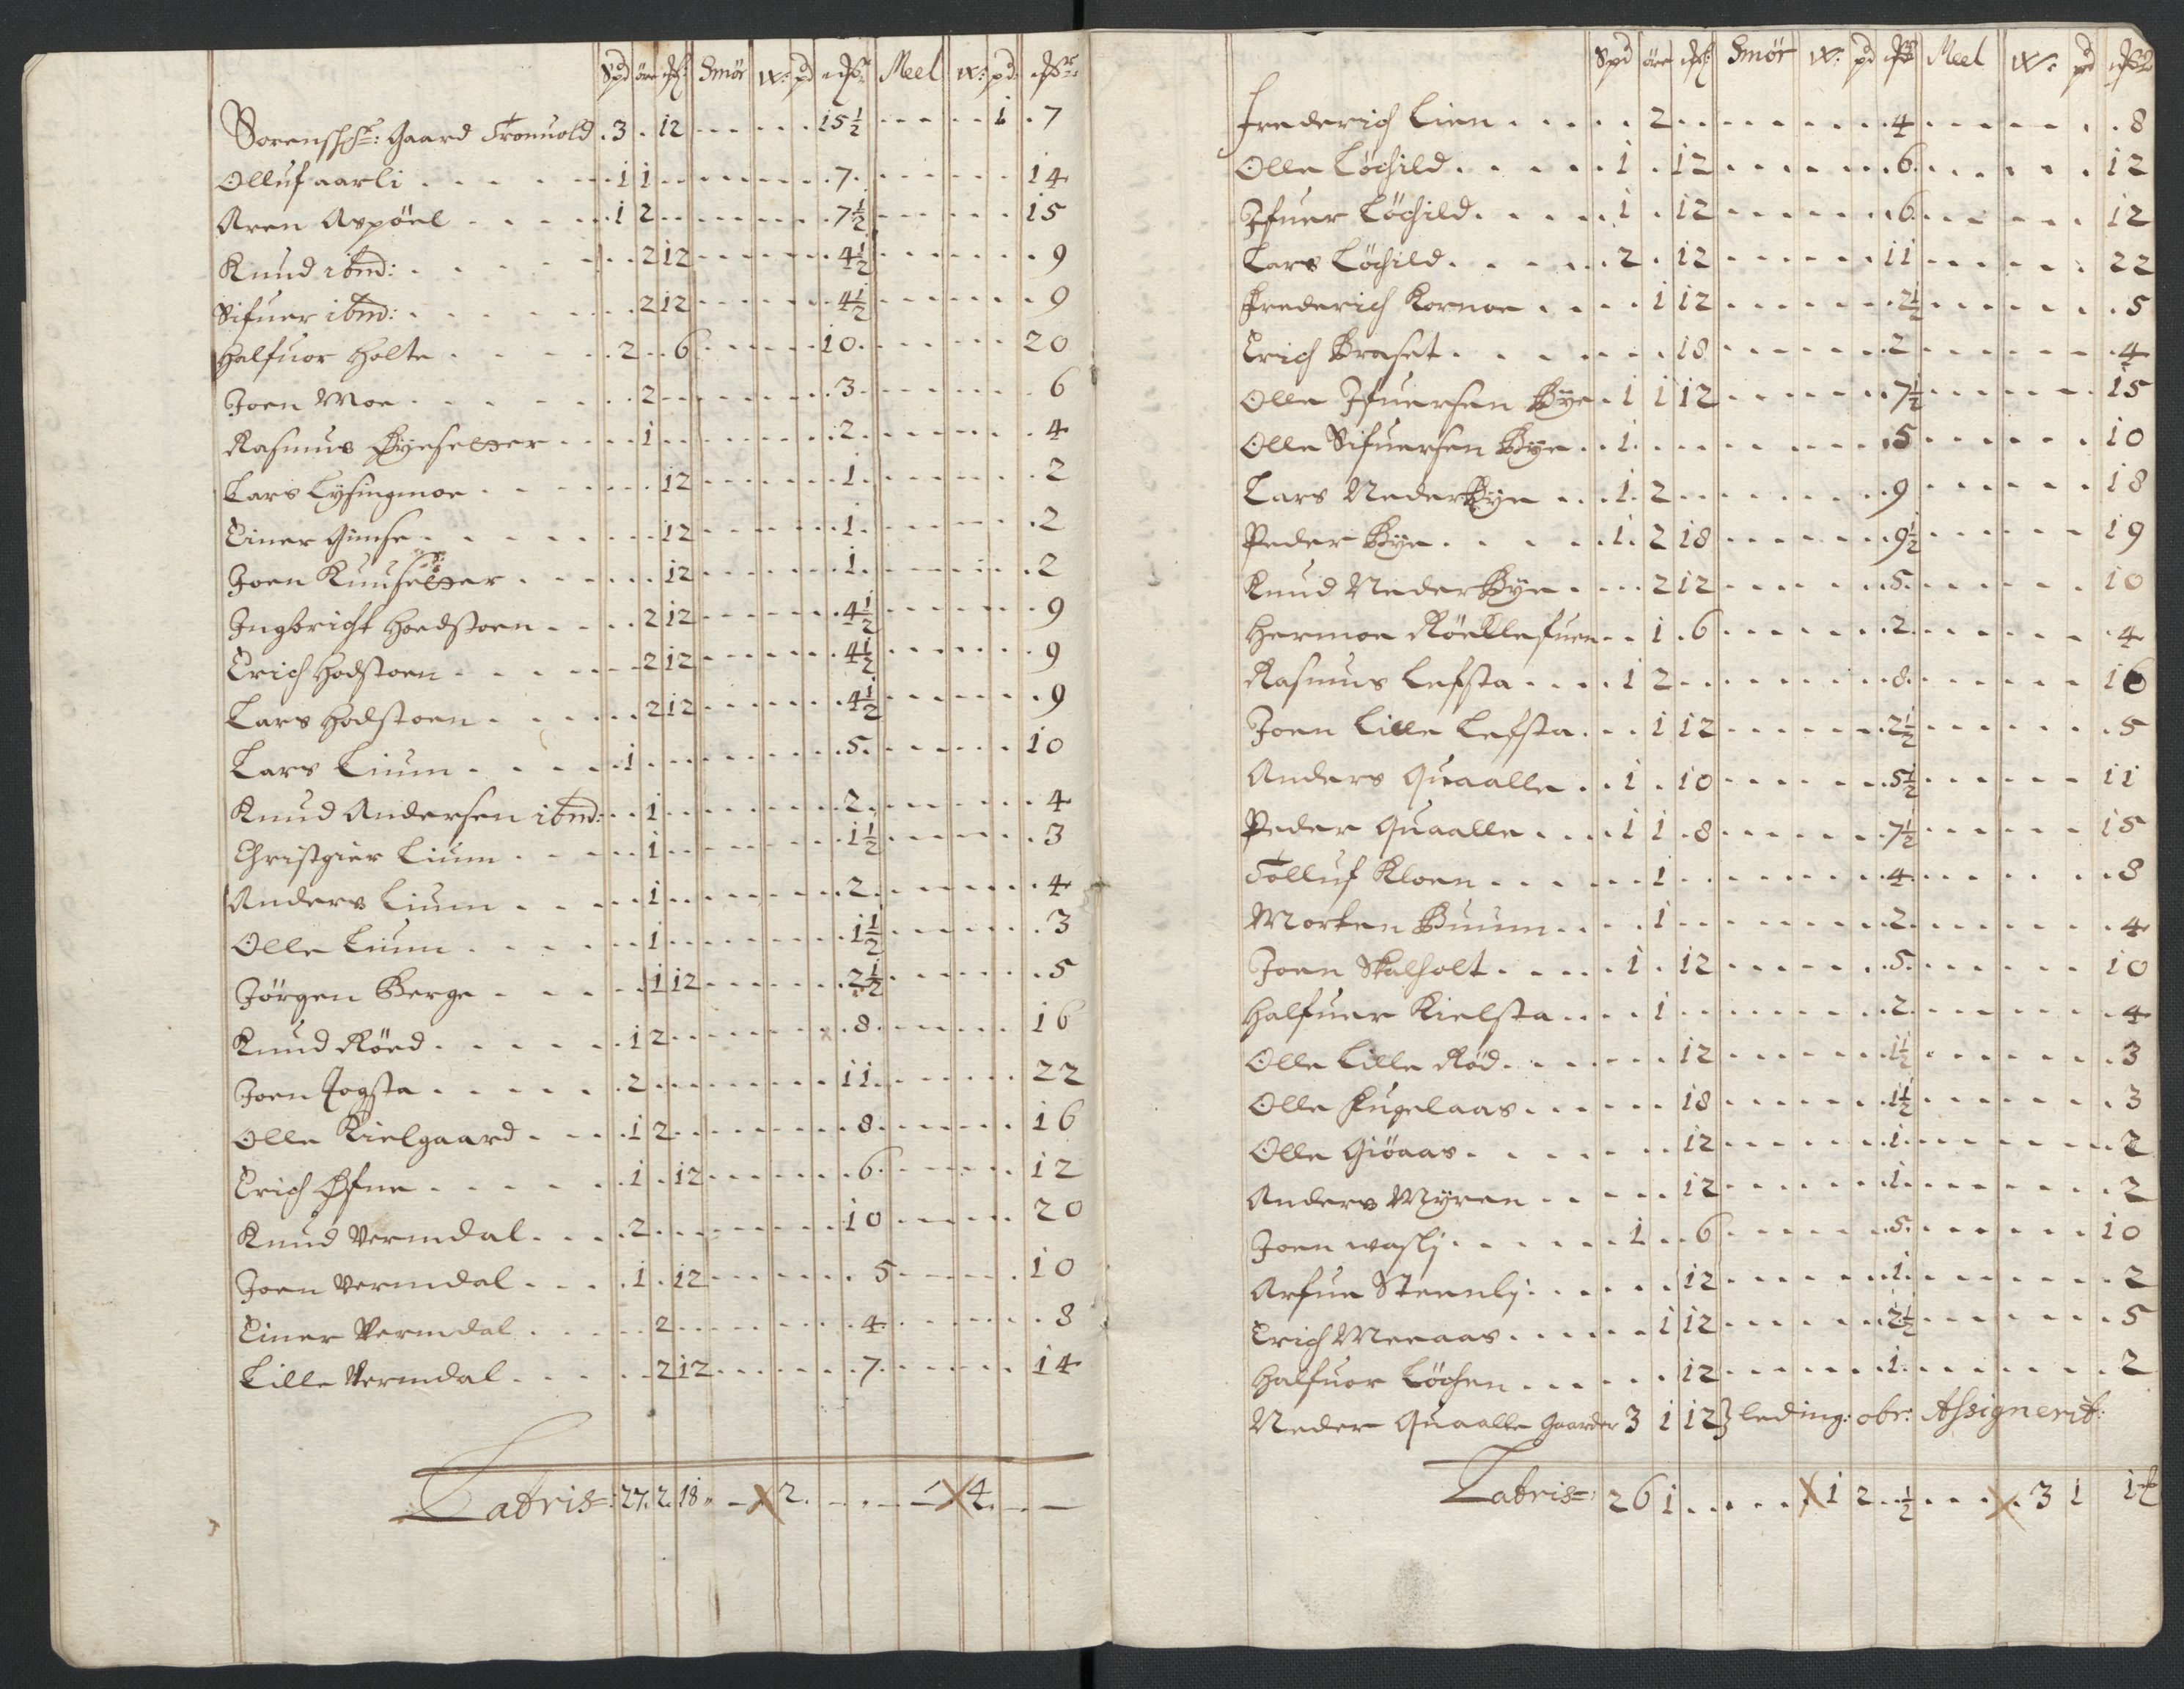 Spd øre Smør W: pd Meel W: pd
Gaard Tronuold . 3 . 12 . . . . . . 15½ . . . . . 1 . 7
Olluf aarli . . . . . 1 1 . . . . . . . 7 . . . . . . 14
Aren Aspöel . . . . . 1 2 . . . . . . . 7½ . . . . . . 15
Knud ibmd: . . . . . . 2 12 . . . . . . 4½ . . . . . . 9
Sifuer ibmd: . . . . . . 2 12 . . . . . . 4½ . . . . . . 9
Halfuor Holte . . . . . 2 . . 6 . . . . . 10 . . . . . . 20
Joen Moe . . . . . . 2 . . . . . . . 3 . . . . . . 6
Rasmus Byesetter . . . . 1 . . . . . . . 2 . . . . . . 4
Lars Lysingmoe . . . . . . 12 . . . . . . 1 . . . . . . 2
Einer Gimse . . . . . . 12 . . . . . . 1 . . . . . . 2
Joen . . . . . . 12 . . . . . . 1 . . . . . . 2
Ingbricht Hoedstoen . . . . 2 12 . . . . . . 4½ . . . . . . 9
Erich Hodstoen . . . . . 2 12 . . . . . . 4½ . . . . . . 9
Lars Hodstoen . . . . . 2 12 . . . . . . 4½ . . . . . . 9
Lars Lium . . . . . 1 . . . . . . . 5 . . . . . . 10
Knud Andersen ibmd: . . 1 . . . . . . . 2 . . . . . . 4
Christgier Lium . . . . . 1 . . . . . . . 1½ . . . . . . 3
Anders Lium . . . . . 1 . . . . . . . 2 . . . . . . 4
Olle Lium . . . . . 1 . . . . . . . 1½ . . . . . . 3
Jörgen Berge . . . . . 1 12 . . . . . . 2½ . . . . . . 5
Knud Röed . . . . . 1 2 . . . . . . x . 8 . . . . . . 16
Joen Fogsta . . . . . 2 . . . . . . . 11 . . . . . . 22
Olle Kielgaard . . . . 1 2 . . . . . . . 8 . . . . . . 16
Erich Øfne . . . . . 1 . 12 . . . . . . 6 . . . . . . 12
Knud Vermdal . . . . 2 . . . . . . . 10 . . . . . . 20
Joen Vermdal . . . . 1 . 12 . . . . . . 5 . . . . . . 10
Einer Vermdal . . . . . 2 . . . . . . . 4 . . . . . . 8
Lille Vermdal . . . . . 2 12 . . . . . . 7 . . . . . . 14
Latris: 27. 2. 18 . - X 2. - . - X 4. - -
Spd øre Smør W: pd Meel W: pd
Frederich Lien . . . . . 2 . . . . . . . 4 . . . . . . 8
Olle Löchild . . . . . 1 . 12 . . . . . . 6 . . . . . . 12
Ifuer Löchild . . . . . 1 . 12 . . . . . . 6 . . . . . . 12
Lars Löchild . . . . . 2 . 12 . . . . . . 11 . . . . . . 22
Frederich Kornoe . . . . 1 12 . . . . . . 2½ . . . . . . 5
Erich Braset . . . . . . 18 . . . . . . 2 . . . . . . 4
Olle Ifuersen Bye . 1 1 12 . . . . . . 7½ . . . . . . 15
Olle Sifuersen Bye . . 1 . . . . . . . 5 . . . . . . 10
Lars Nederbye . . . 1 . 2 . . . . . . . 9 . . . . . . 18
Peder Bye . . . . . 1 . 2 18 . . . . . . 9½ . . . . . . 19
Knud Nederbye . . . . 2 12 . . . . . . 5 . . . . . . 10
Hermoe . . 1 . 6 . . . . . . 2 . . . . . . 4
Rasmus Lefsta . . . . 1 2 . . . . . . . 8 . . . . . . 16
Joen Lille Lefsta . . . 1 12 . . . . . . 2½ . . . . . . 5
Anders Quaalle . . 1 . 10 . . . . . . 5½ . . . . . . 11
Peder Quaalle . . . . 1 1 . 8 . . . . . . 7½ . . . . . . 15
Tolluf Kloen . . . . . . 1 . . . . . . . 4 . . . . . . 8
Morten Buum . . . . 1 . . . . . . . 2 . . . . . . 4
Joen Skalholt . . . . . 1 . 12 . . . . . . 5 . . . . . . 10
Halfuer Kielsta . . . . 1 . . . . . . . 2 . . . . . . 4
Olle Lille Röd . . . . . . 12 . . . . . . 1½ . . . . . . 3
Olle Fugelaas . . . . . . 18 . . . . . . 1½ . . . . . . 3
Olle Giöaas . . . . . . . 12 . . . . . . 1 . . . . . . 2
Anders Myren . . . . . 12 . . . . . . 1 . . . . . . 2
Joen waslj . . . . . . 1 . . 6 . . . . . . 5 . . . . . . 10
Arfue Steenlj . . . . . 12 . . . . . . 1 . . . . . . 2
Erich Meeaas . . . . . . 1 12 . . . . . . 2½ . . . . . . 5
Halfuor Löchen . . . . . . 12 . . . . . . 1 . . . . . . 2
Neder Quaalle Gaarder 3 1 12 } leding: obr: Assignerit:
Latris: 26 1 . . . . . X 1 2 . ½ . . . X . 3 1